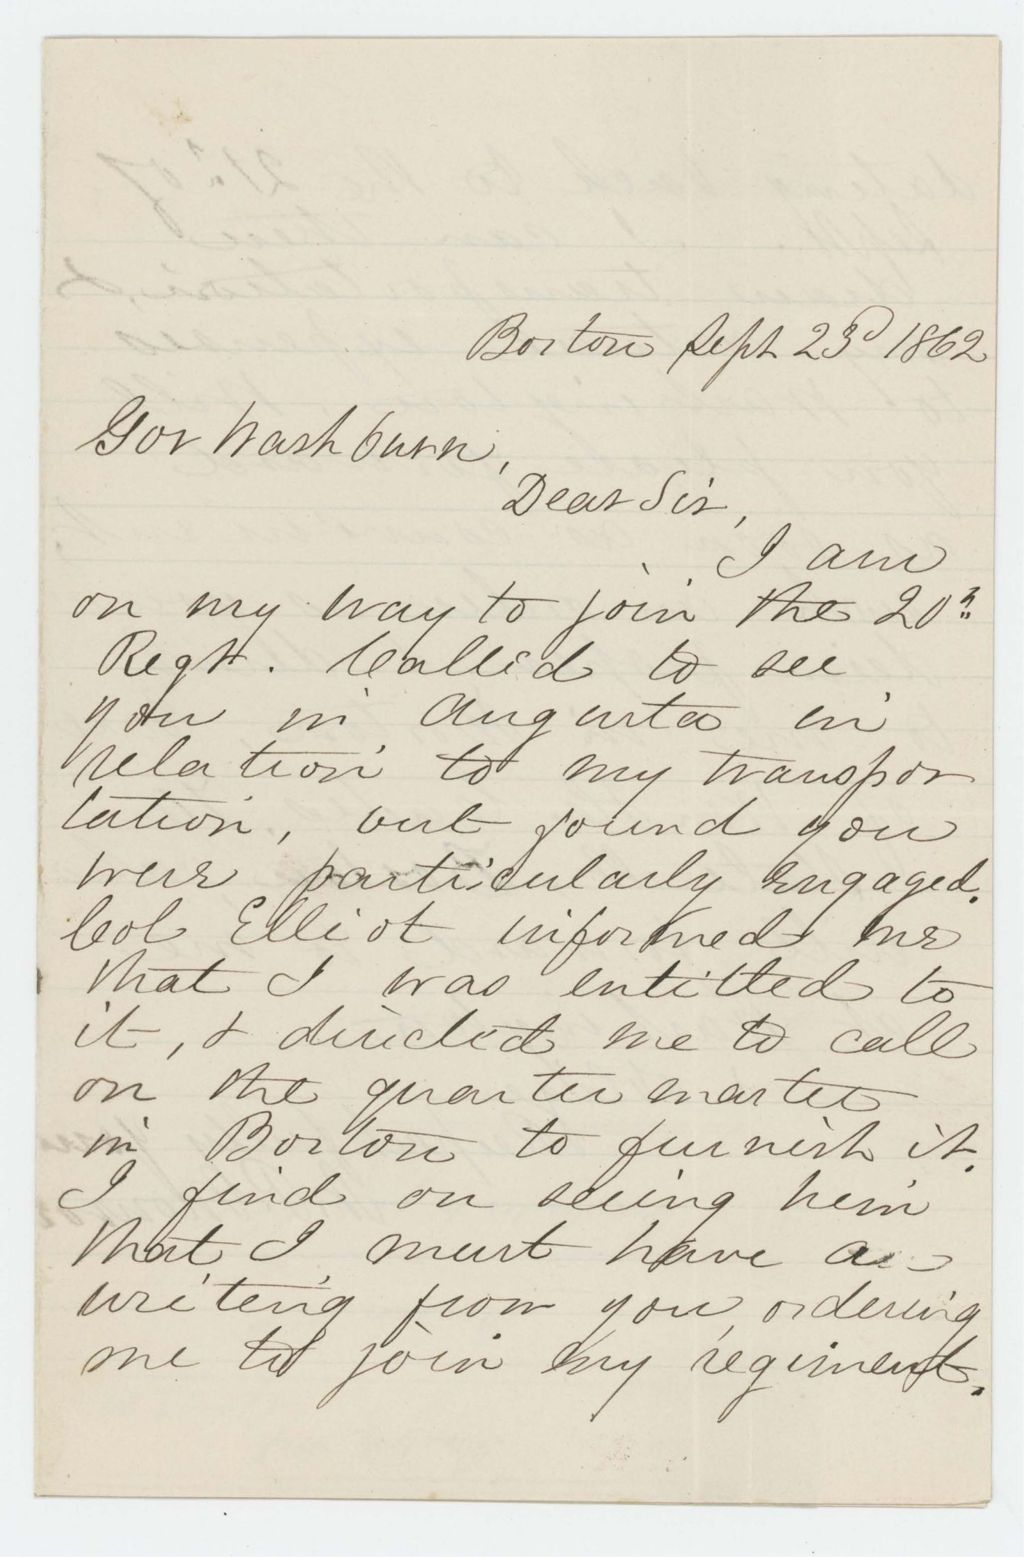 Boston Sept 23d 1862
Gov Washburn,
Dear Sir,
I am
on my way to join the 20th
Regt. Called to see
you in Augusta in
relation to my transpor
tation, but found you
were particularly engaged.
Col Elliot informed me
that I was entitled to
it, & directed me to call
on the quarter master
in Boston to furnish it.
I find on seeing him
that I must have a
writing from you, ordering
me to join my regiment.